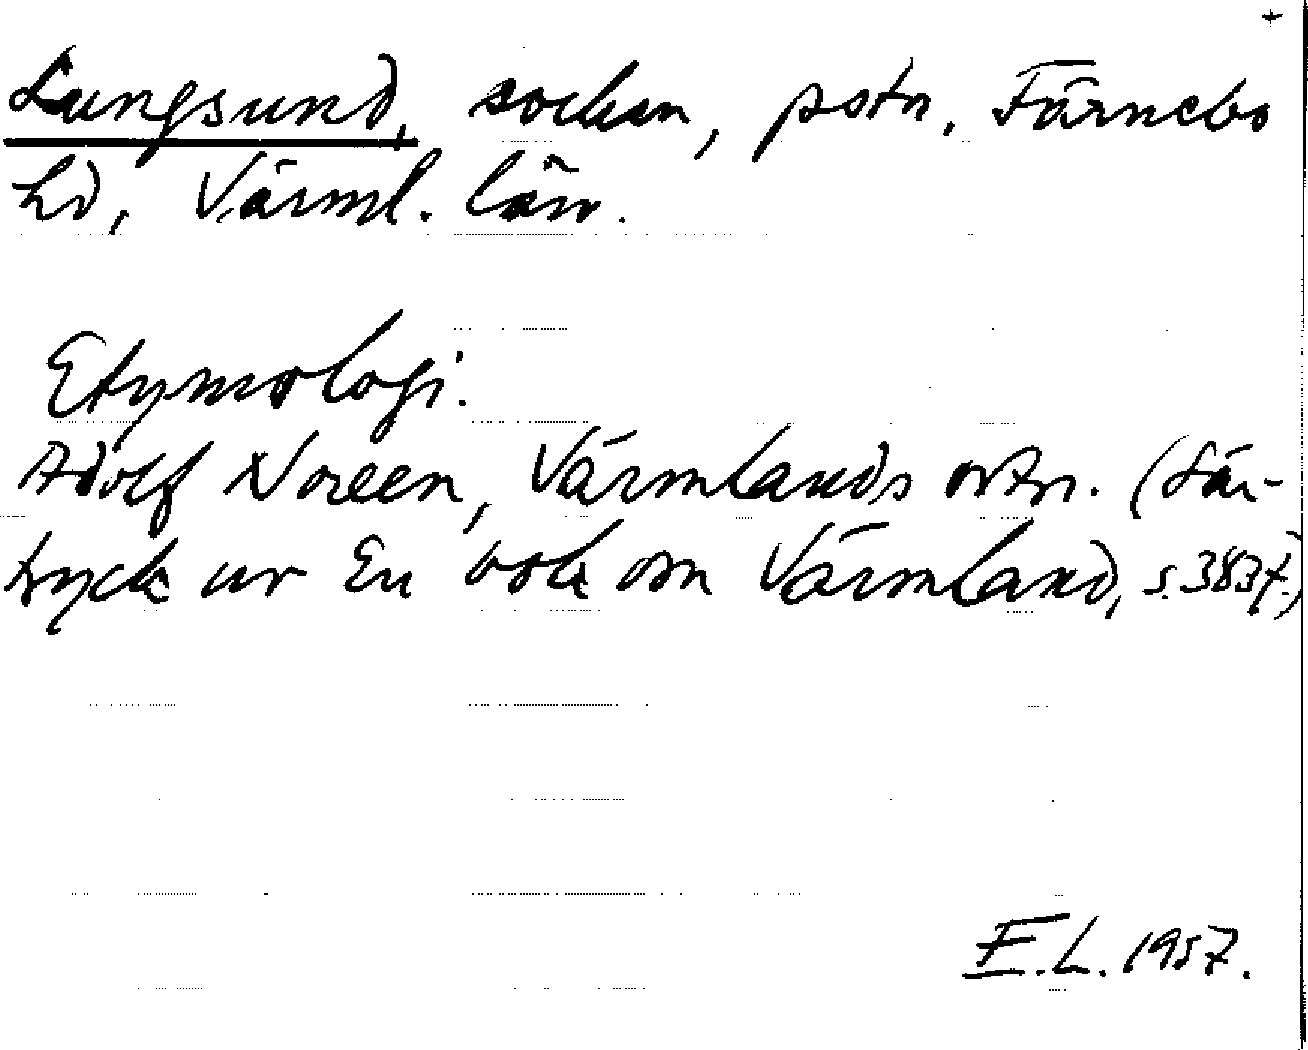 +
Lungsund, socken, pstn, Färnebo
hd, Värml. län.
Etymologi.
Adolf Noreen, Värmlands ortn. (Sär-
tryck ur En bok om Värmland, s. 383 f.)
E.L. 1957.